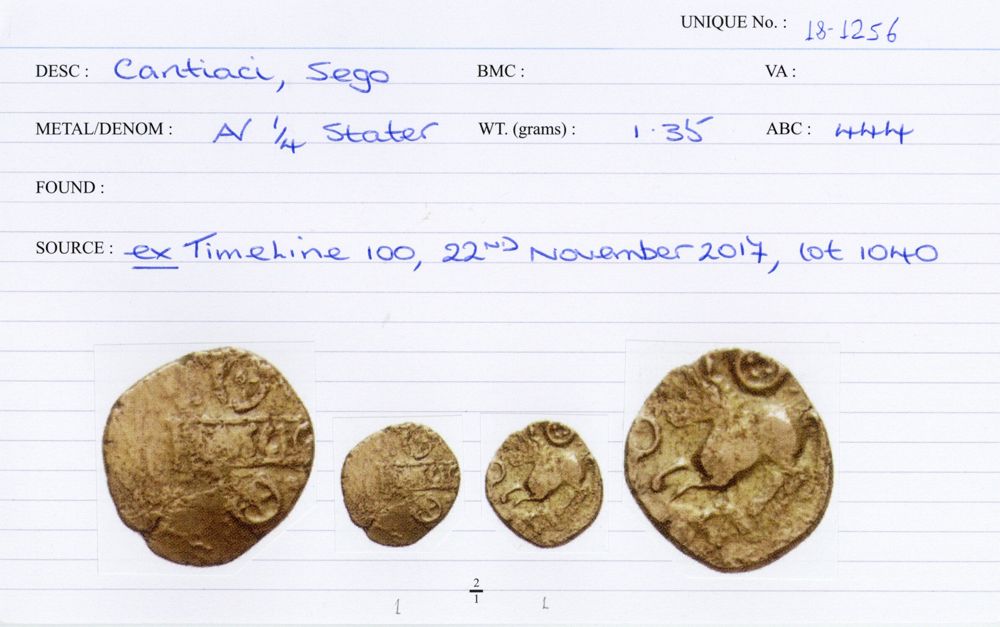 UNIQUE No. : 18-1256
DESC : Cantiaci, Sego BMC : VA :
METAL/DENOM : AV 1/4 Stater WT. (grams) : 1.35 ABC : 444
FOUND :
SOURCE : ex TimeLine 100, 22ND November 2017, lot 1040
2/1
1 1